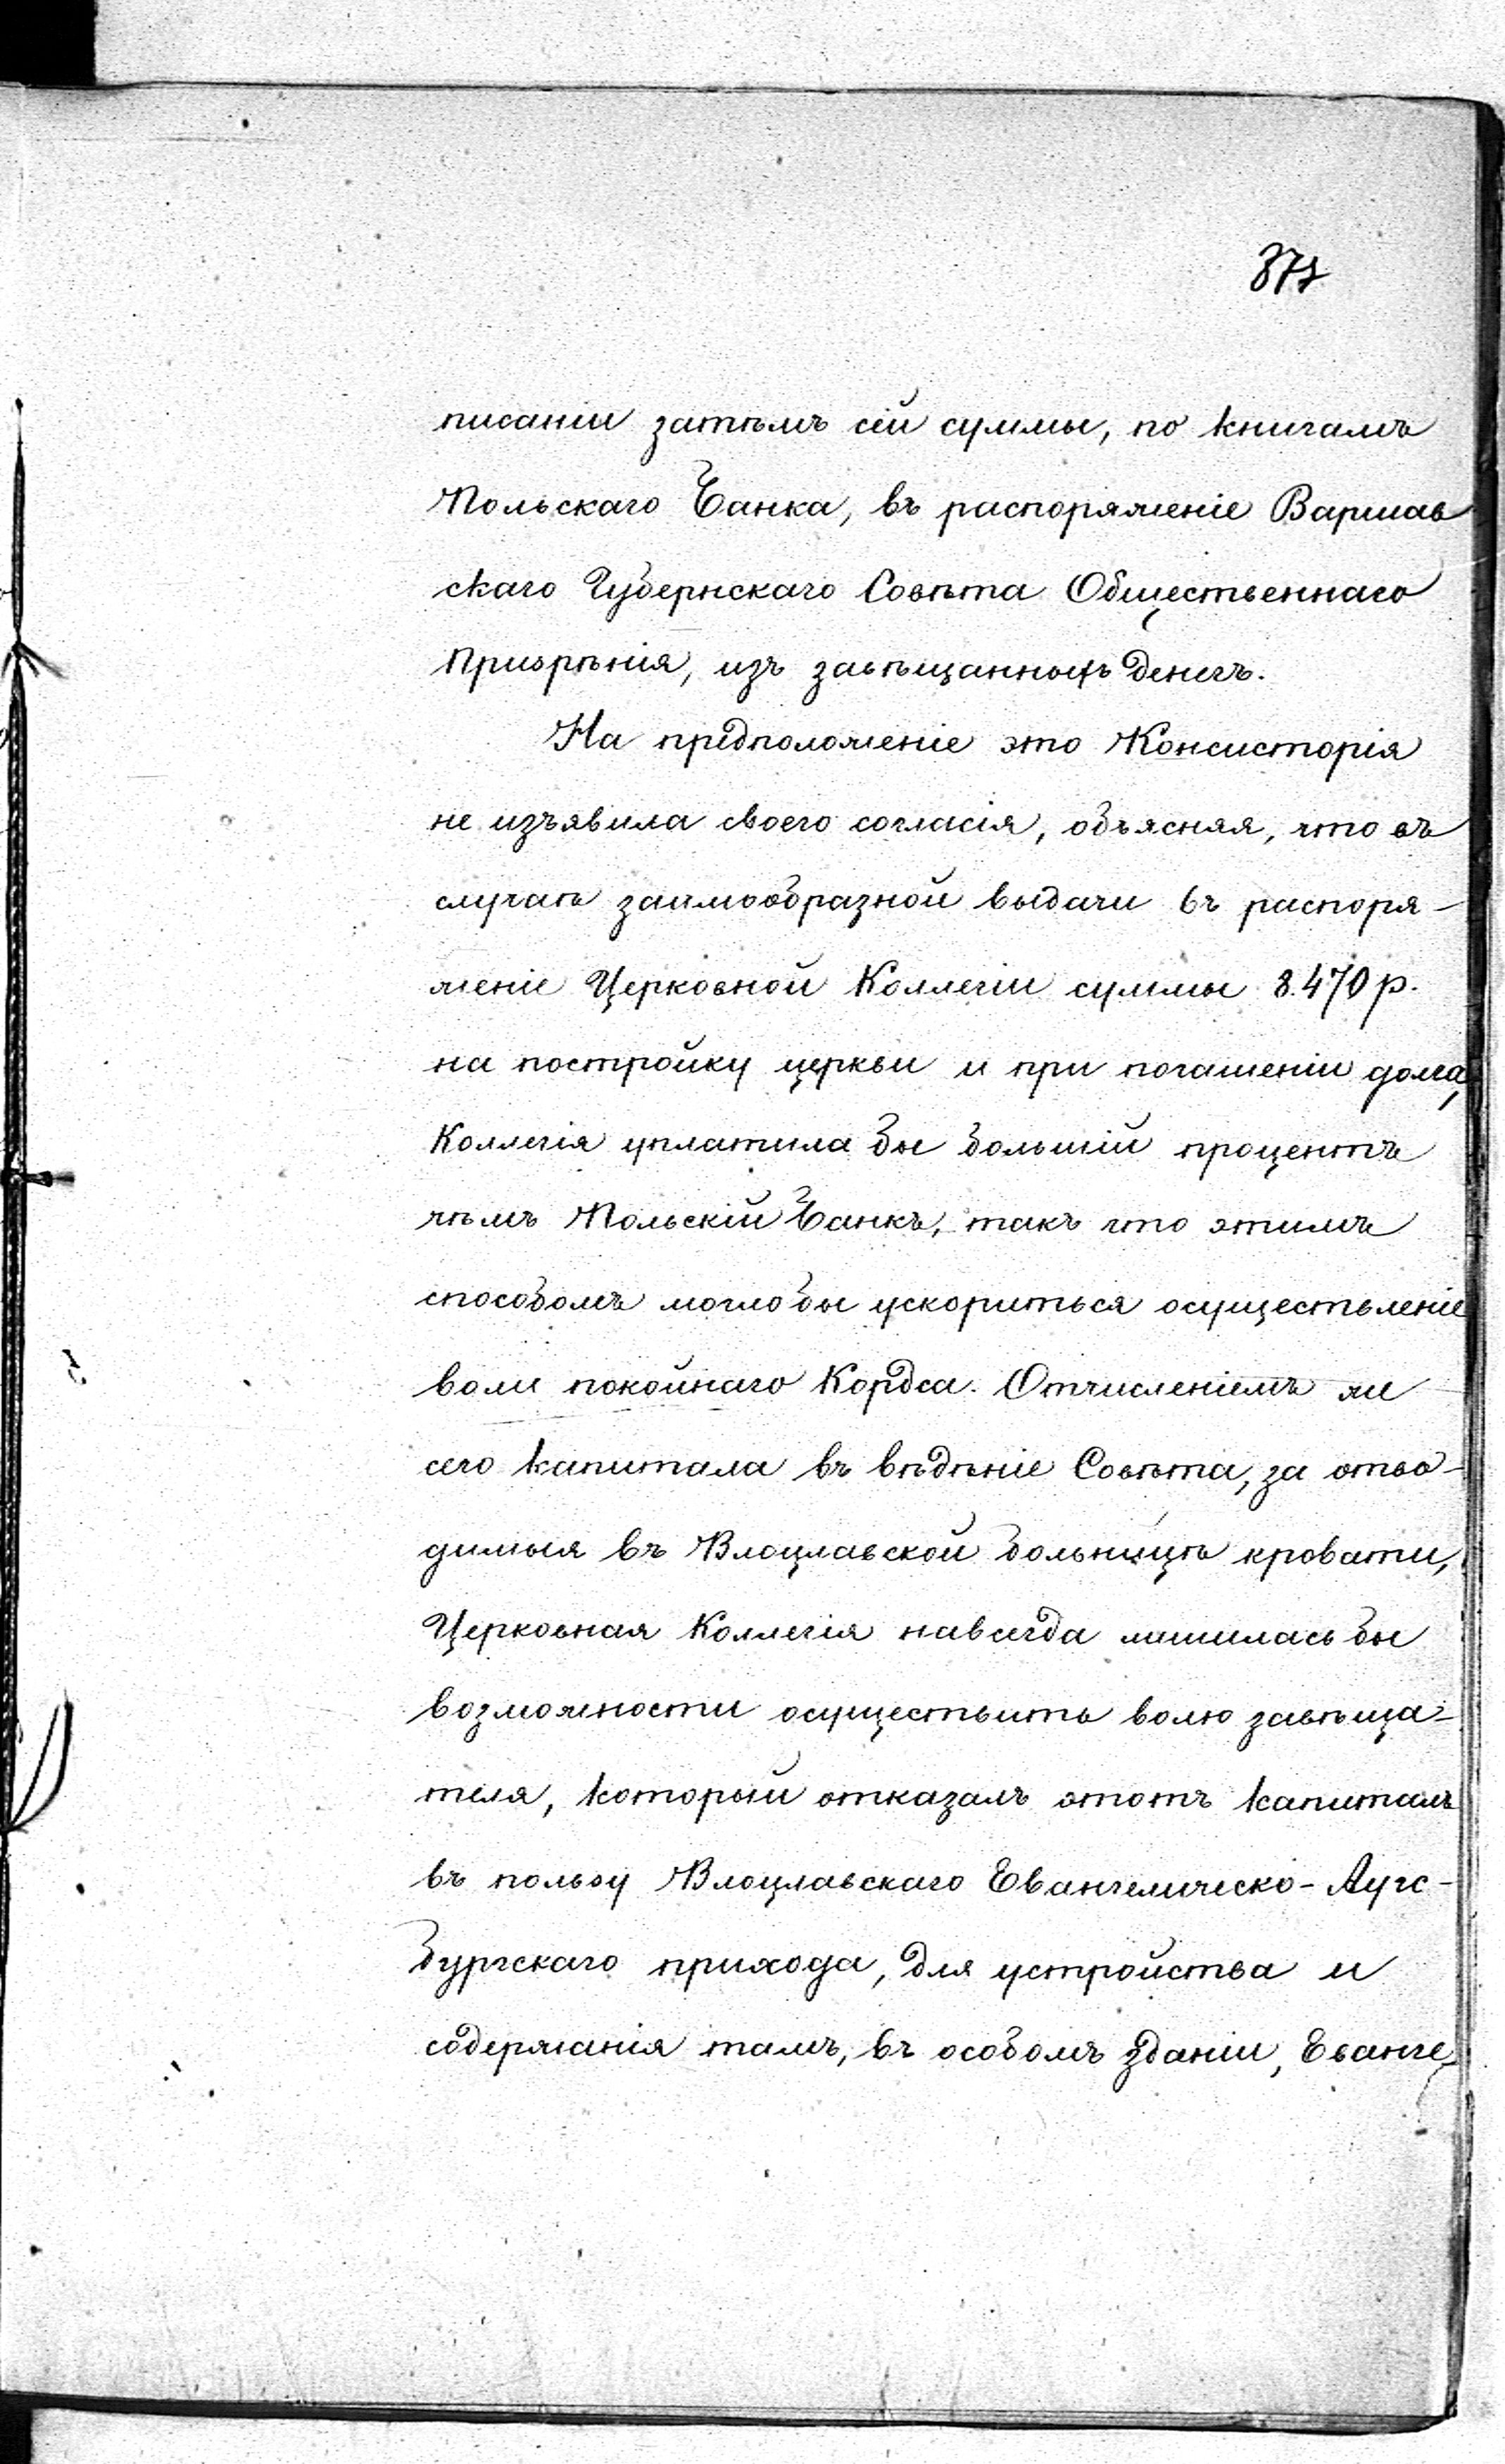 871
писаніи затѣмъ сей суммы, по книгамъ
Польскаго Банка, въ распоряженіе Варшав
скаго Губернскаго Совѣта Общественнаго
Призрѣнія, изъ завѣщанныхъ денегъ.
На предположеніе это Консисторія
не изъявила своего согласія, объясняя, что въ
случаѣ заимообразной выдачи въ распоря-
женіе Церковной Коллегіи суммы 8.470 р.
на постройку церкви и при погашеніи долга,
Коллегія уплатила бы большій процентъ
чѣмъ Польскій Банкъ, такъ что этимъ
способомъ моглобы ускориться осуществленіе
воли покойнаго Кордса. Отчисленіемъ же
сего капитала въ вѣдѣніе Совѣта, за отво-
димыя въ Влоцлавской больницѣ кровати,
Церковная Коллегія навсегда лишиласьбы
возможности осуществить волю завѣща-
теля, который отказалъ этотъ капиталъ
въ пользу Влоцлавскаго Евангелическо-Аугс-
бургскаго прихода, для устройства и
содержанія тамъ, въ особомъ зданіи, Еванге